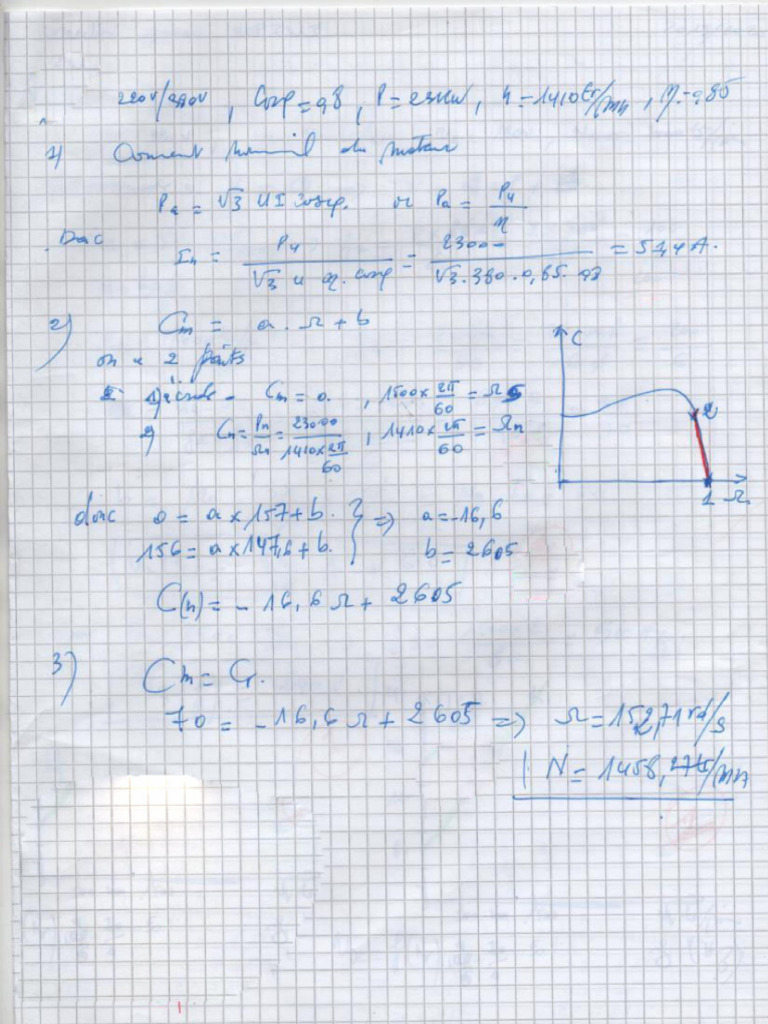 220V/380V, Cosφ=0,8, P=23KW, n=1410tr/mn, η=0,85
1) Courant nominal du moteur
Pa = √3 U I cosφ. or Pa = Pu/η
Donc In = Pu/(√3 U η. cosφ) = 23000/(√3.380.0,85.0,8) = 51,4A.
2) Cm = a. Ω + b
on a 2 points
1) à vide - Cm = 0. , 1500×2π/60 = Ωs
2) Cn = Pn/Ωn = 23000/(1410×2π/60) , 1410×2π/60 = Ωn
C
2
1 Ω
donc 0 = a×157+b. } ⇒ a=-16,6
156 = a×147,6+b. b = 2605
C(n) = -16,6Ω + 2605
3) Cm = Cr.
70 = -16,6Ω + 2605 ⇒ Ω=152,71rd/s
N = 1458,27tr/mn